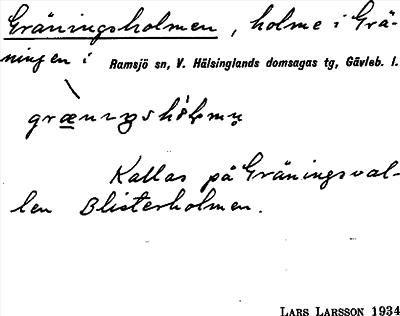 Gräningsholmen, holme i Grä-
ningen i Ramsjö sn, V. Hälsinglands domsagas tg, Gävleb. l.
Kallas på Gräningsval-
len Blisterholmen.
LARS LARSSON 1934